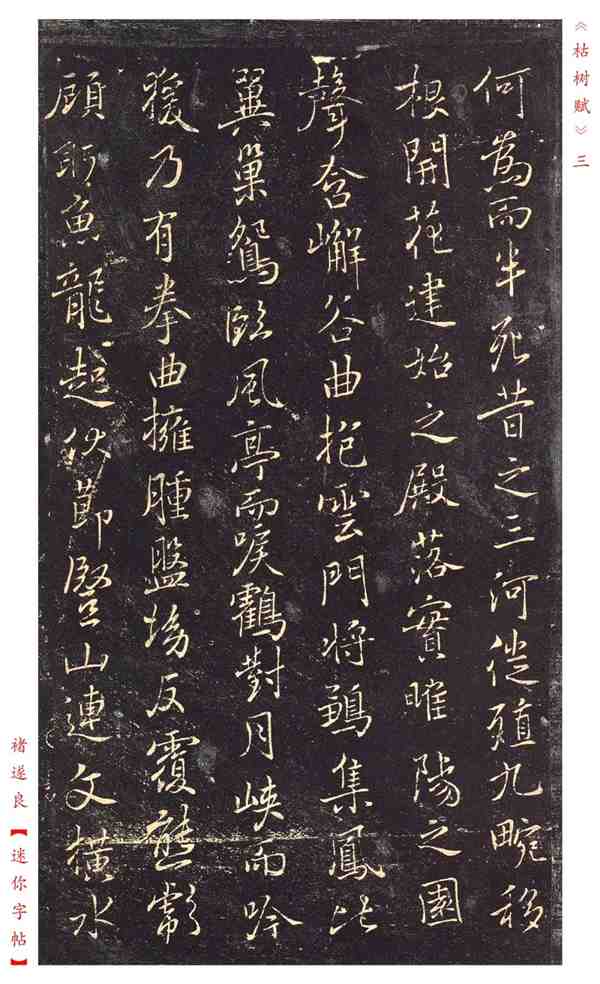 《枯树赋》三
何為而半死昔之三河徙殖九畹移
根開花建始之殿落實睢陽之園
聲含嶰谷曲抱雲門將鶵集鳳比
翼巢鴛臨風亭而唳鶴對月峽而吟
猨乃有拳曲擁腫盤坳反覆熊彪
顧眄魚龍起伏節豎山連文橫水
褚遂良【迷你字帖】